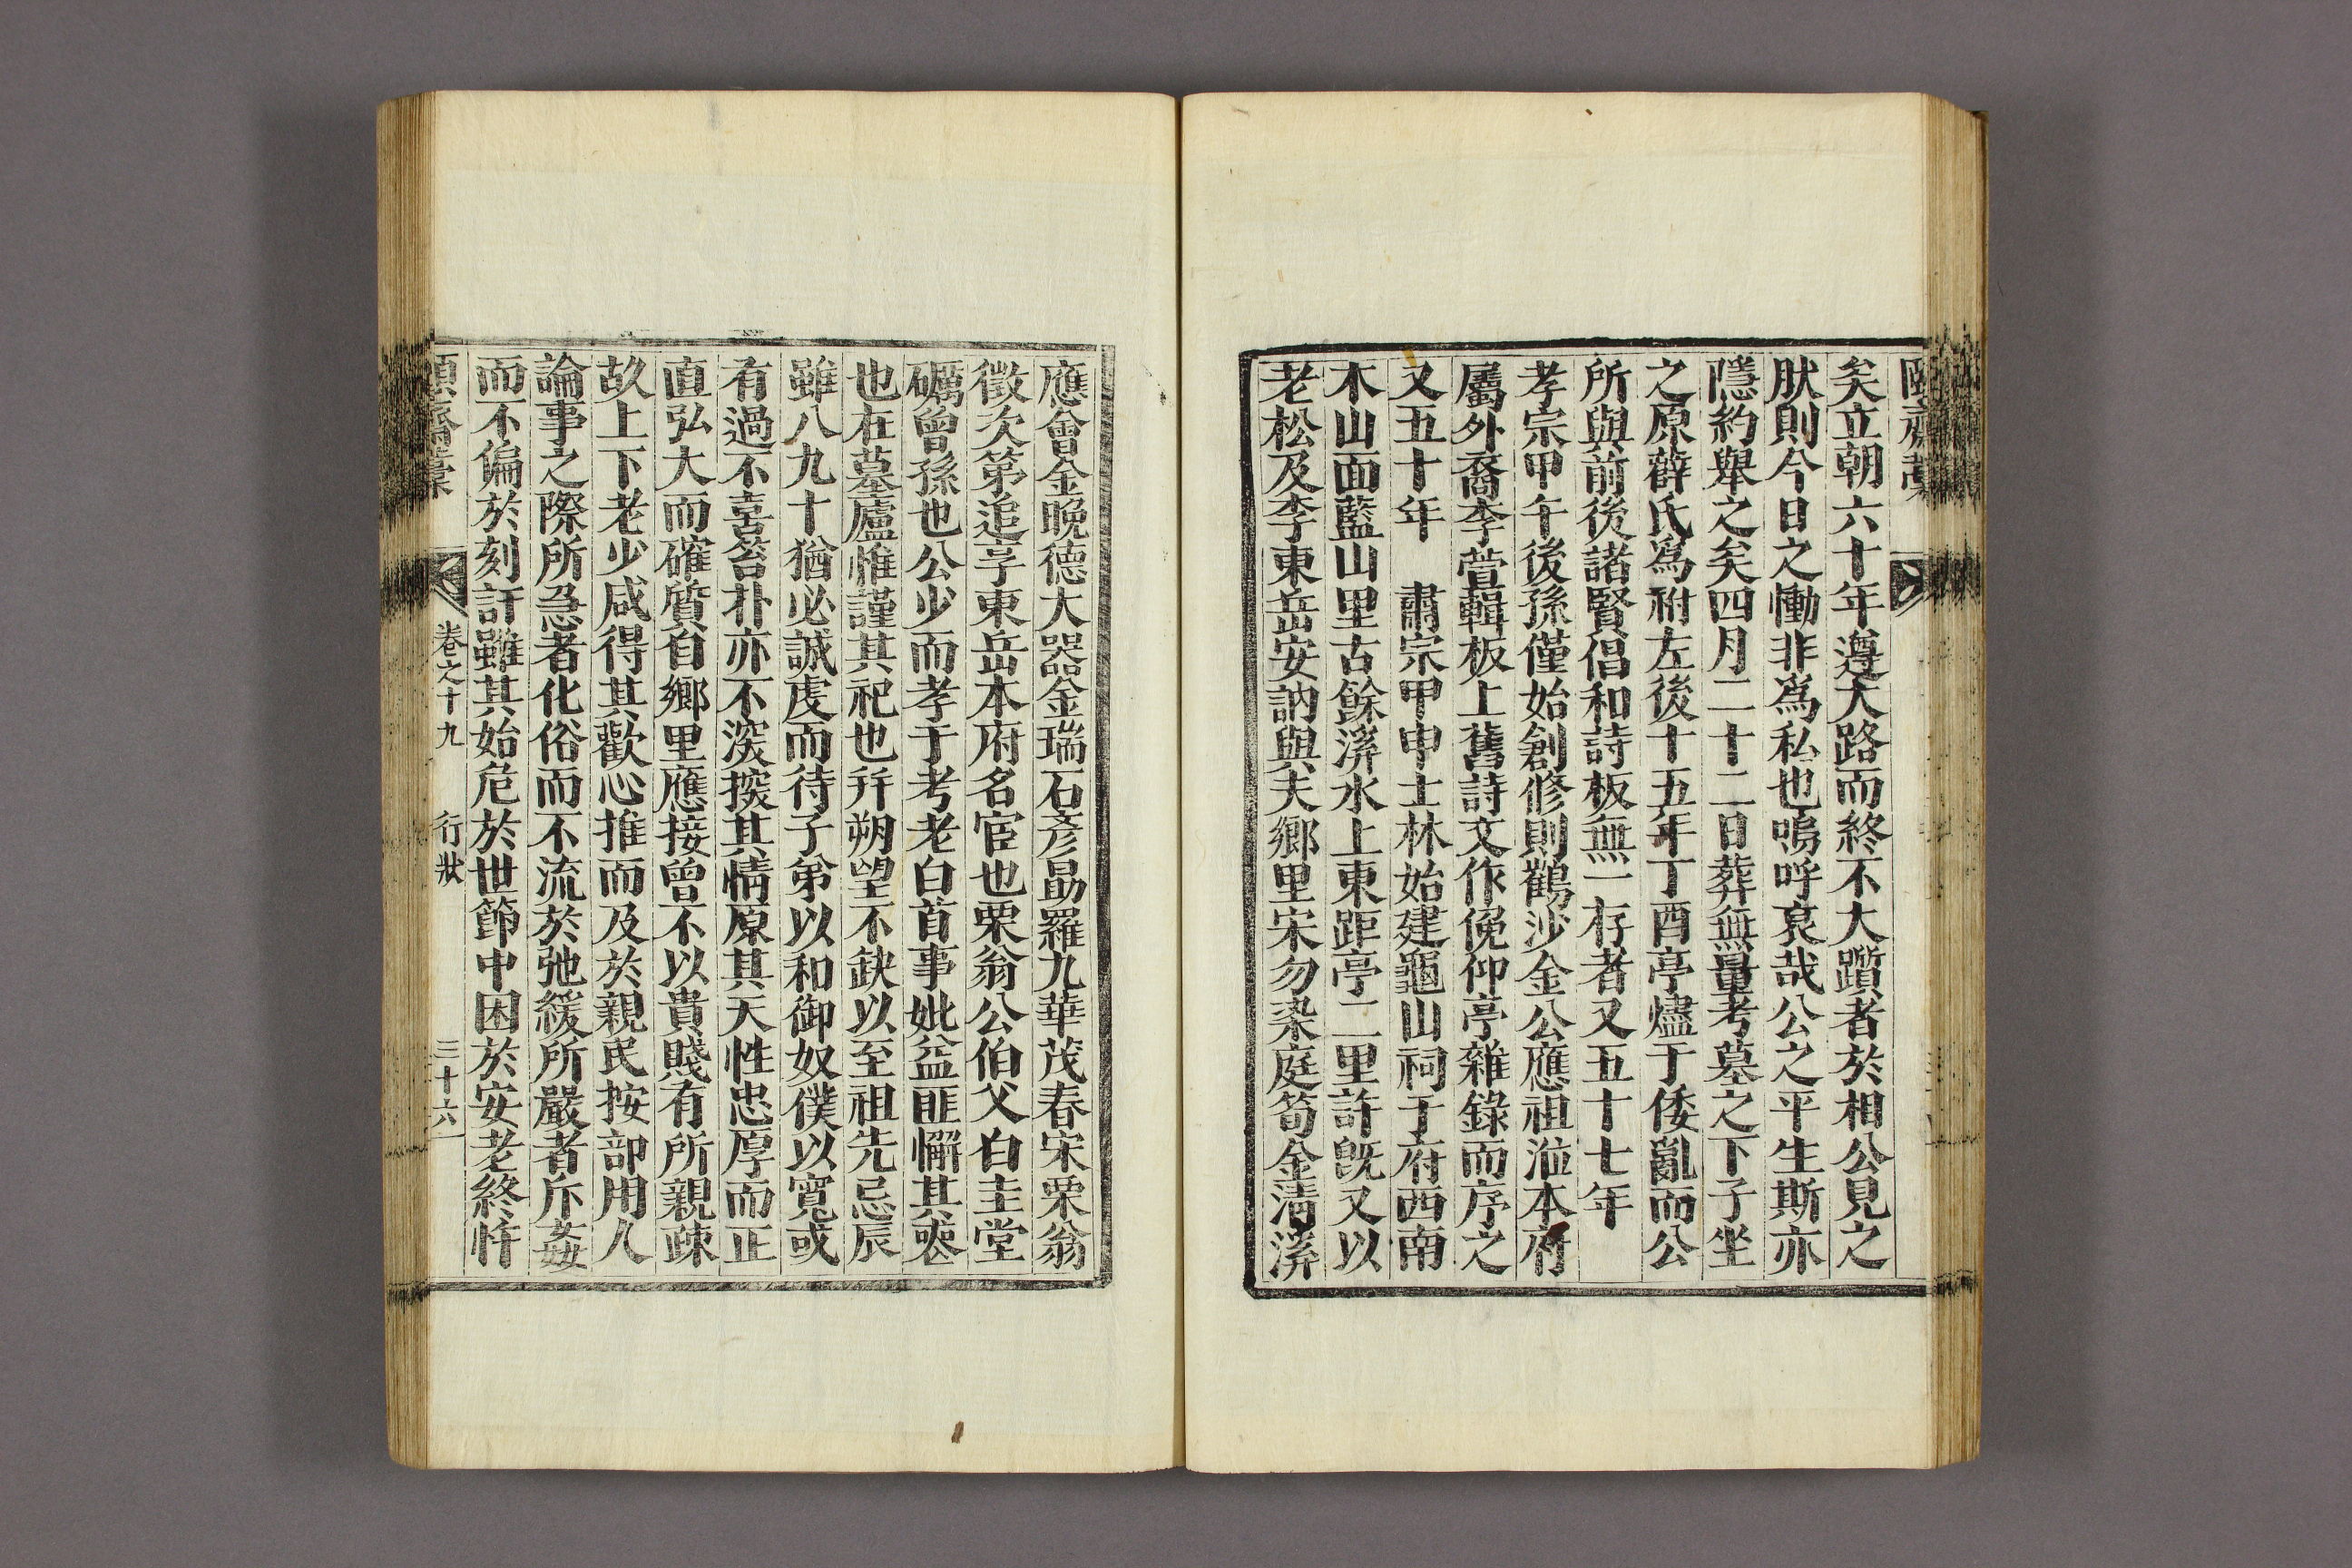 頤齋藁
矣立朝六十年遵大路而終不大躓者於相公見之
肰則今日之慟非爲私也嗚呼哀哉公之平生斯亦
隱約舉之矣四月二十二日葬無量考墓之下子坐
之原薛氏爲祔左後十五年丁酉亭燼于倭亂而公
所與前後諸賢倡和詩板無一存者又五十七年
孝宗甲午後孫僅始創修則鸛沙金公應祖涖本府
屬外裔李萱輯板上舊詩文作俛仰亭雜錄而序之
又五十年　肅宗甲申士林始建龜山祠于府西南
木山面藍山里古餘溪水上東距亭二里許旣又以
老松及李東岳安訥與夫鄉里宋勿染庭筍金淸溪
應會金晚德大器金瑞石彥勗羅九華茂春宋栗翁
徵次第追享東岳本府名宦也栗翁公伯父白圭堂
礪曾孫也公少而孝于考老白首事妣益匪懈其喪
也在墓廬惟謹其祀也幷朔望不缺以至祖先忌辰
雖八九十猶必誠虔而待子弟以和御奴僕以寬或
有過不喜笞扑亦不深探其情原其天性忠厚而正
直弘大而確質自鄉里應接曾不以貴賤有所親疎
故上下老少咸得其歡心推而及於親民按部用人
論事之際所急者化俗而不流於弛緩所嚴者斥姦
而不偏於刻訐雖其始危於世節中困於安老終忤
頤齋藁　卷之十九　行狀　三十六